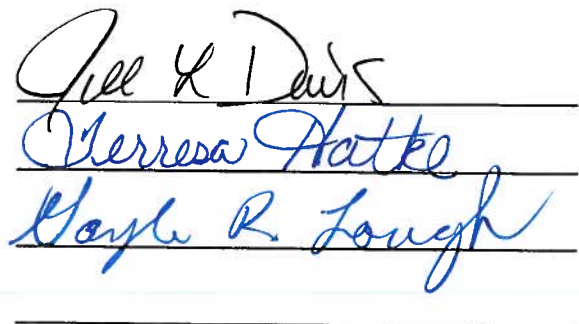 Jill L Davis
Terresa Hatke
Gayle R. Lough